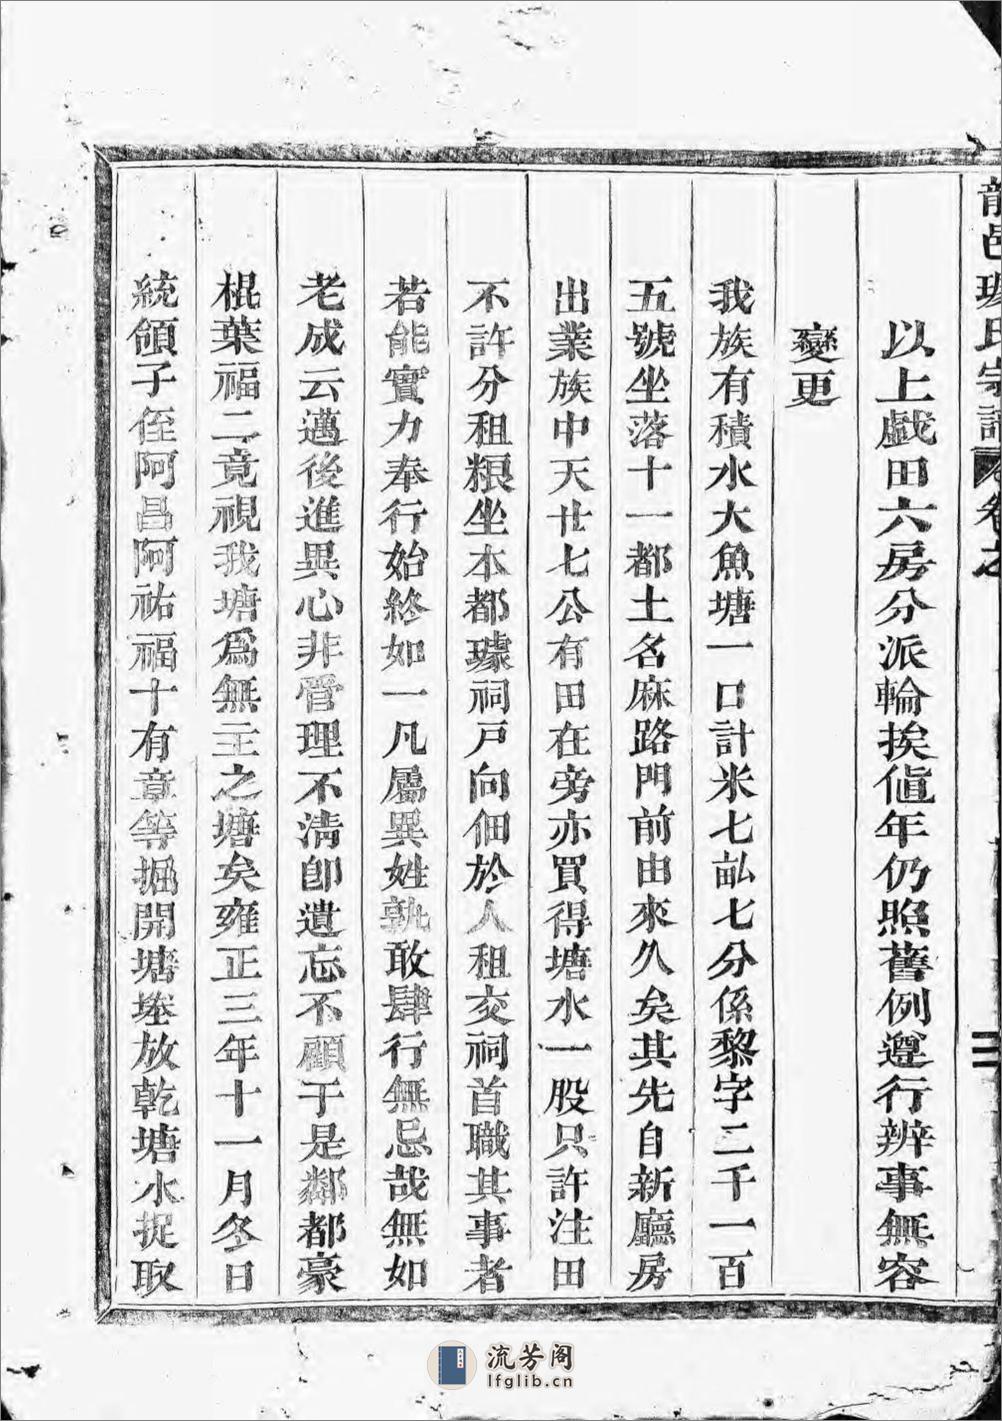 龍邑璩氏宗譜 卷之 三
以上戲田六房分派輪挨値年仍照舊例遵行辨事無容
變更
我族有積水大魚塘一口計米七畆七分係黎字二千一百
五號坐落十一都土名麻路門前由來久矣其先自新廳房
出業族中天廿七公有田在旁亦買得塘水一股只許注田
不許分租粮坐本都璩祠戸向佃於人租交祠首職其事者
若能實力奉行始終如一凡屬異姓孰敢肆行無忌哉無如
老成云邁後進異心非管理不清卽遺忘不顧于是鄰都豪
棍葉福二竟視我塘爲無主之塘矣雍正三年十一月冬日
統領子侄阿昌阿祐福十有章等掘開塘塍放乾塘水捉取
流芳阁
lfglib.cn